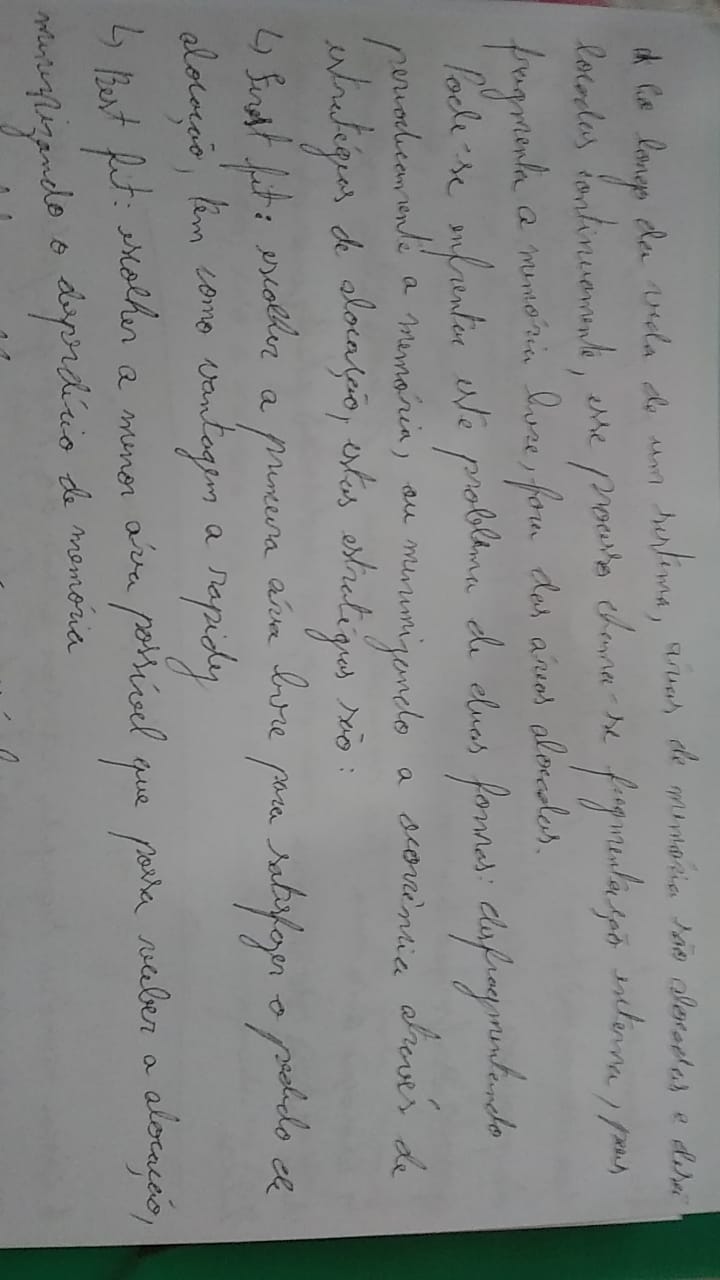 * Ao longo da vida de um sistema, áreas de memória são alocadas e desa
locadas continuamente, esse processo chama-se fragmentação externa, pois
fragmenta a memória livre, fora das áreas alocadas.
Pode-se enfrentar este problema de duas formas: desfragmentando
periodicamente a memória, ou minimizando a ocorrência através de
estratégias de alocação, estas estratégias são:
↳ First fit: escolher a primeira área livre para satisfazer o pedido de
alocação, tem como vantagem a rapidez
↳ Best fit: escolher a menor área possível que possa receber a alocação,
minimizando o desperdício de memória